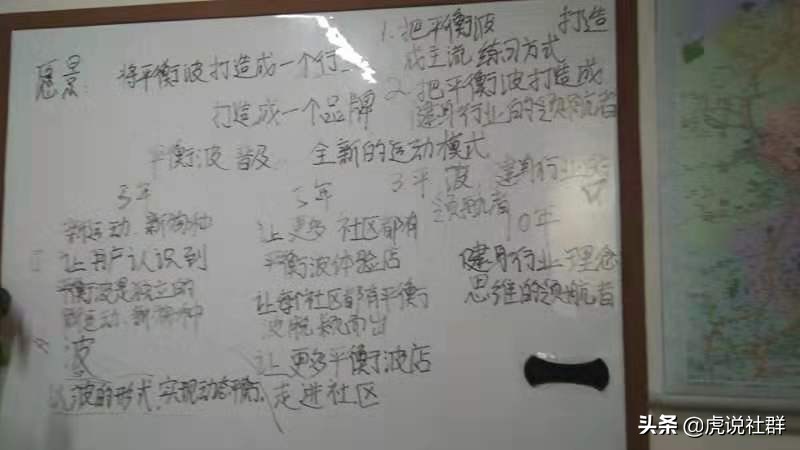 愿景：将平衡波打造成一个行
打造成一个品牌
1. 把平衡波 打造
成主流练习方式
2. 把平衡波打造成
健身行业的领航者
平衡波普及 全新的运动模式
3年 5年
10年
新运动、新物种
让用户认识到
平衡波是独立的
新运动、新物种
波
以波的形式,实现动态平衡、
让更多社区都有
平衡波体验店
让每个社区都有平衡
波脱颖而出
让更多平衡波店
走进社区
领航者
健身行业与理念
思维的领航者
头条 @虎说社群